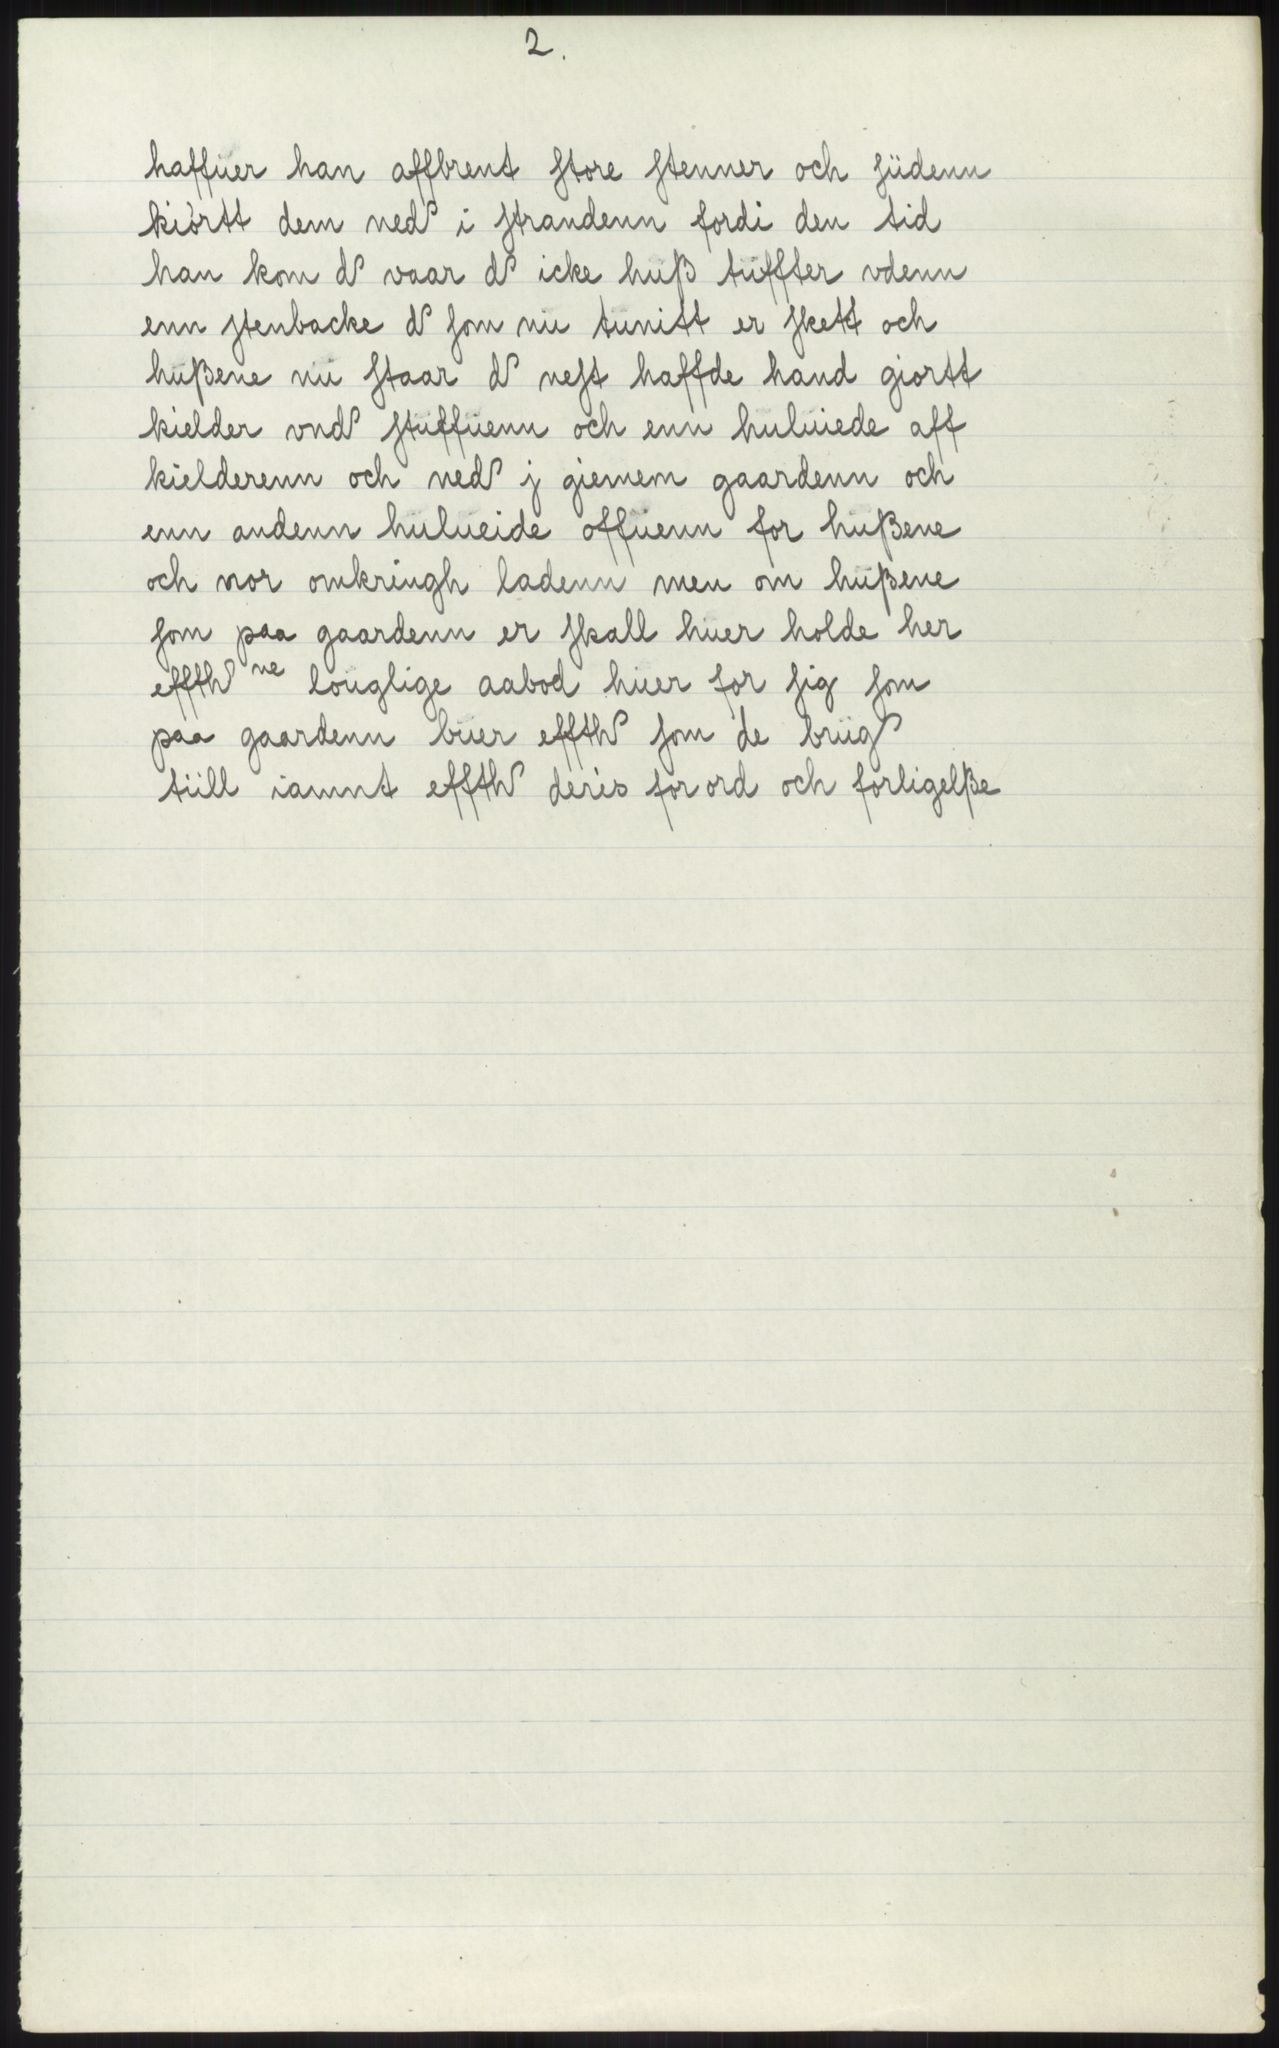 2.
haffuer han affbrent store stenner och südenn
kiörtt dem ned i strandenn fordi den tid
han kom d vaar d icke huß tüffter vdenn
enn stenbacke d som nu tunitt er skett och
hußene nu staar d nest haffde hand giortt
kielder vnd stuffuenn och enn huluiede aff
kielderenn och ned j giemem gaardenn och
enn andenn hulueide offuenn for hußene
och nor omkringh ladenn men om hußene
som paa gaardenn er skall huer holde her
effth ne louglige aabod huer for sig som
paa gaardenn buer effth som de brug
tiill iamnt effth deris forord och forligelße